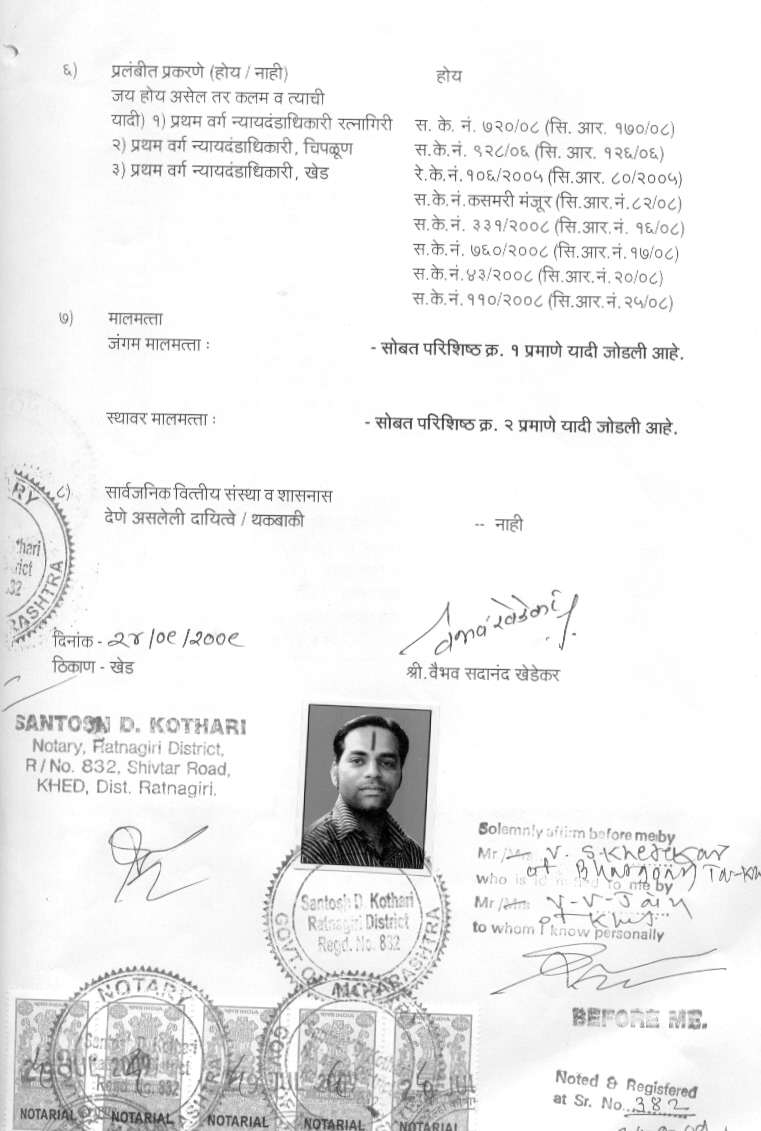 ६) प्रलंबीत प्रकरणे (होय / नाही) होय
जय होय असेल तर कलम व त्याची
यादी) १) प्रथम वर्ग न्यायदंडाधिकारी रत्नागिरी स. के. नं. ७२०/०८ (सि. आर. १७०/०८)
२) प्रथम वर्ग न्यायदंडाधिकारी, चिपळूण स.के.नं. ९२८/०६ (सि. आर. १२६/०६)
३) प्रथम वर्ग न्यायदंडाधिकारी, खेड रे.के.नं.१०६/२००५ (सि.आर. ८०/२००५)
स.के.नं.कसमरी मंजूर (सि.आर.नं.८२/०८)
स.के.नं. ३३१/२००८ (सि.आर.नं. १६/०८)
स.के.नं. ७६०/२००८ (सि.आर.नं.१७/०८)
स.के.नं.४३/२००८ (सि.आर.नं.२०/०८)
स.के.नं.११०/२००८ (सि.आर.नं.२५/०८)
७) मालमत्ता
जंगम मालमत्ता : - सोबत परिशिष्ठ क्र. १ प्रमाणे यादी जोडली आहे.
स्थावर मालमत्ता : - सोबत परिशिष्ठ क्र. २ प्रमाणे यादी जोडली आहे.
८) सार्वजनिक वित्तीय संस्था व शासनास
देणे असलेली दायित्वे / थकबाकी -- नाही
दिनांक - २८/०९/२००९
ठिकाण - खेड श्री. वैभव सदानंद खेडेकर
SANTOSH D. KOTHARI
Notary, Ratnagiri District,
R/No. 832, Shivtar Road,
KHED, Dist. Ratnagiri.
Solemnly affirm before me by
Mr/Mrs V. S. Khedekar
who is to me by
Mr/Mrs V-V-Jain
to whom I know personally
Santosh D. Kothari
Ratnagiri District
Regd. No. 832
GOVT OF MAHARASHTRA
NOTARY
BEFORE ME.
Noted & Registered
at Sr. No. 382
NOTARIAL NOTARIAL NOTARIAL NOTARIAL NOTARIAL